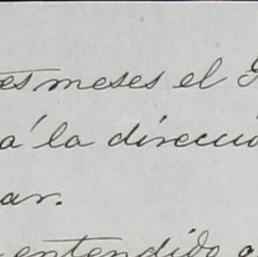 es meses el
a' la direcció
ar.
entendido